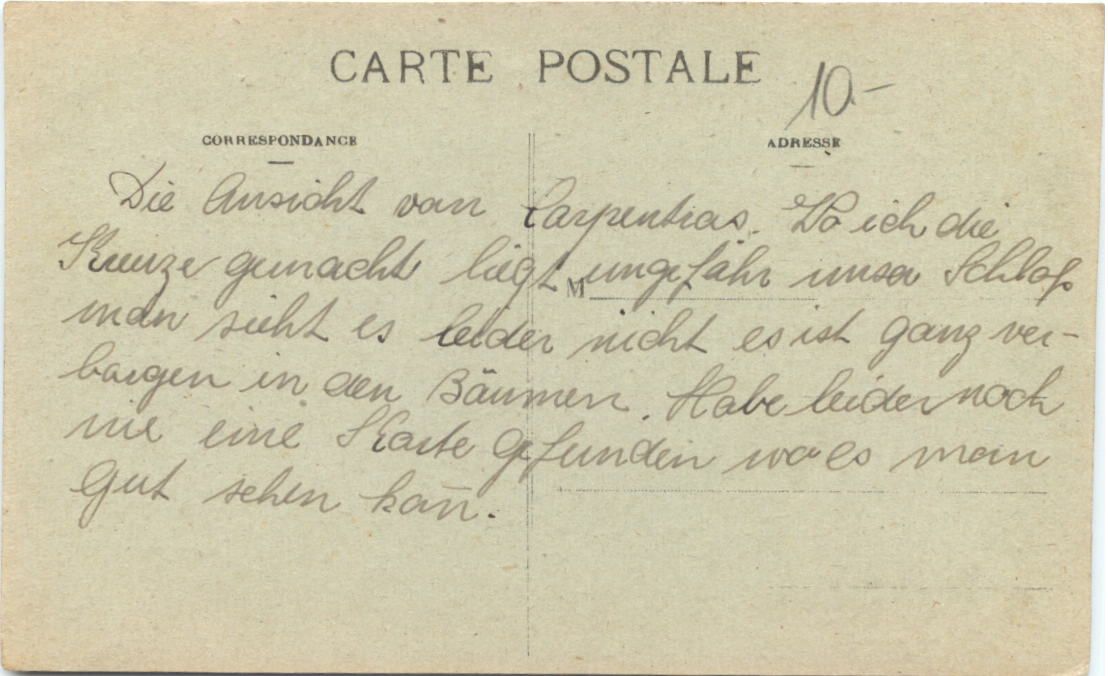 CARTE POSTALE
10.-
CORRESPONDANCE
ADRESSE
Die Ansicht von Carpentras. Wo ich die
Kreuze gemacht liegt ungefähr unser Schloß
man sieht es leider nicht es ist ganz ver-
borgen in den Bäumen. Habe leider noch
nie eine Karte gefunden wo es man
gut sehen kan̄.
M